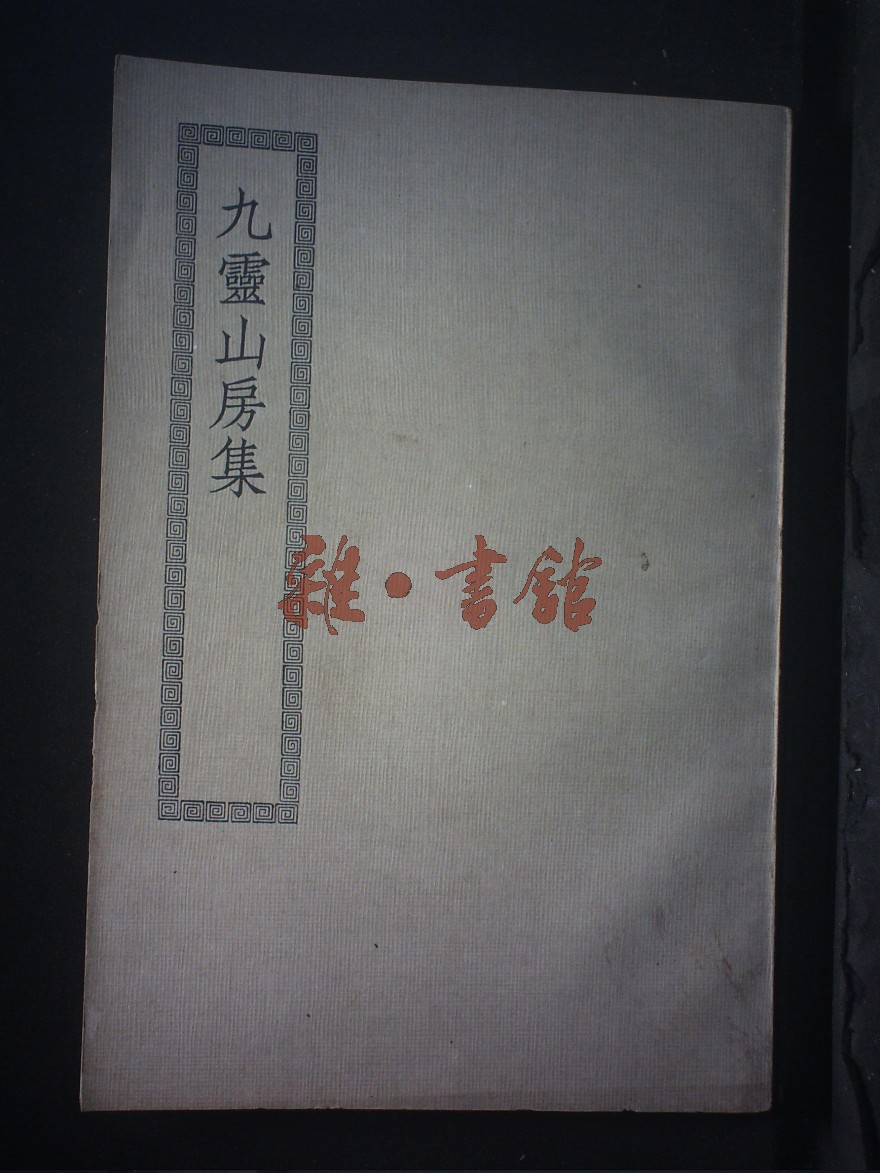 九靈山房集
雜·書館